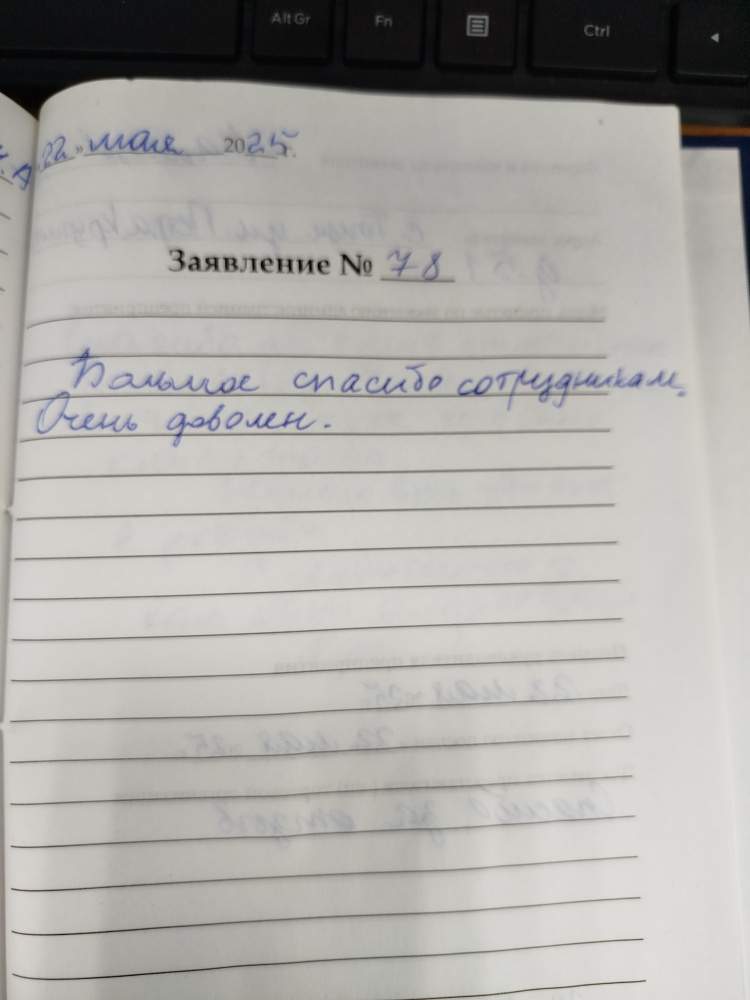 Alt Gr
Fn
Ctrl
«22» мая 2025г.
Заявление № 78
Большое спасибо сотрудникам.
Очень доволен.